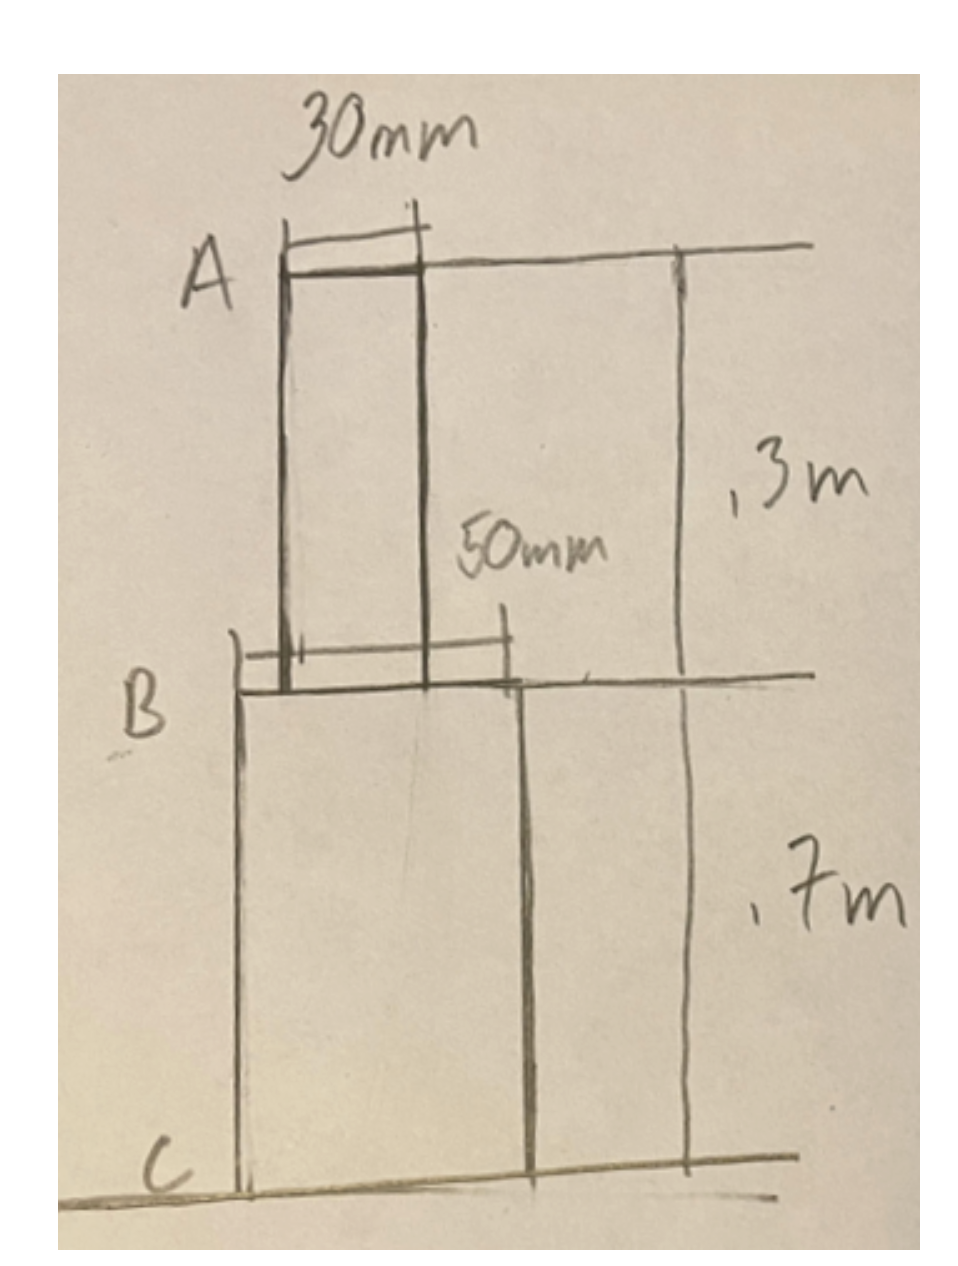 30mm
A
.3m
50mm
B
.7m
C